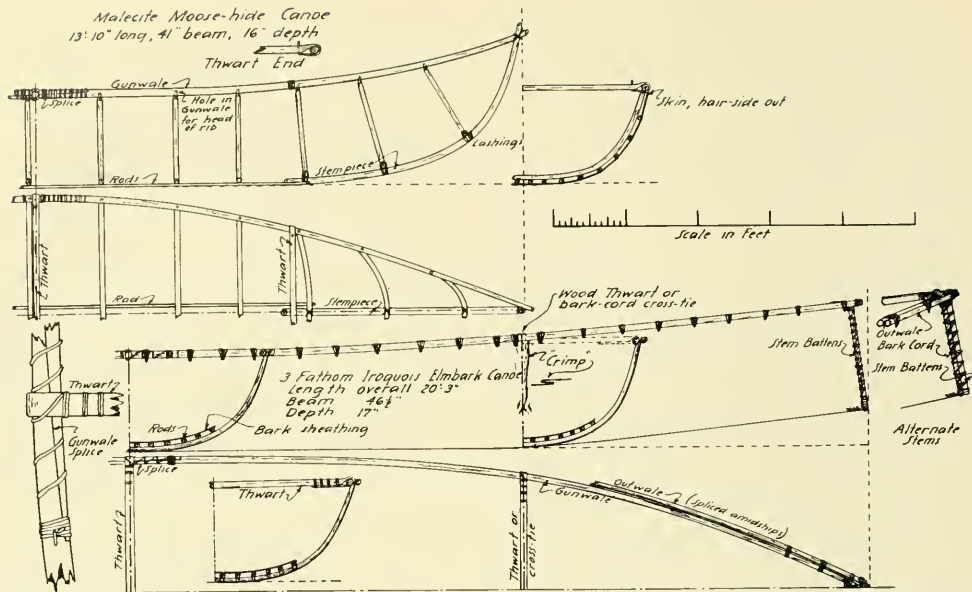 Malecite Moose-hide Canoe
13'10" long, 41" beam, 16" depth
Thwart End
Gunwale
Splice
Hole in
Gunwale
for head
of rib
Stempiece
Lashings
Rods
Skin, hair-side out
Scale in Feet
℄ Thwart
Thwart
Rod
Stempiece
Wood Thwart or
bark-cord cross-tie
"Crimp"
Stem Battens
Outwale
Bark Cord
Stem Battens
Alternate
Stems
Thwart
Gunwale
Splice
3 Fathom Iroquois Elmbark Canoe
Length overall 20'3"
Beam 46½"
Depth 17"
Rods
Bark sheathing
Splice
Thwart
Thwart
Thwart or
cross-tie
Gunwale
Outwale (spliced amidships)